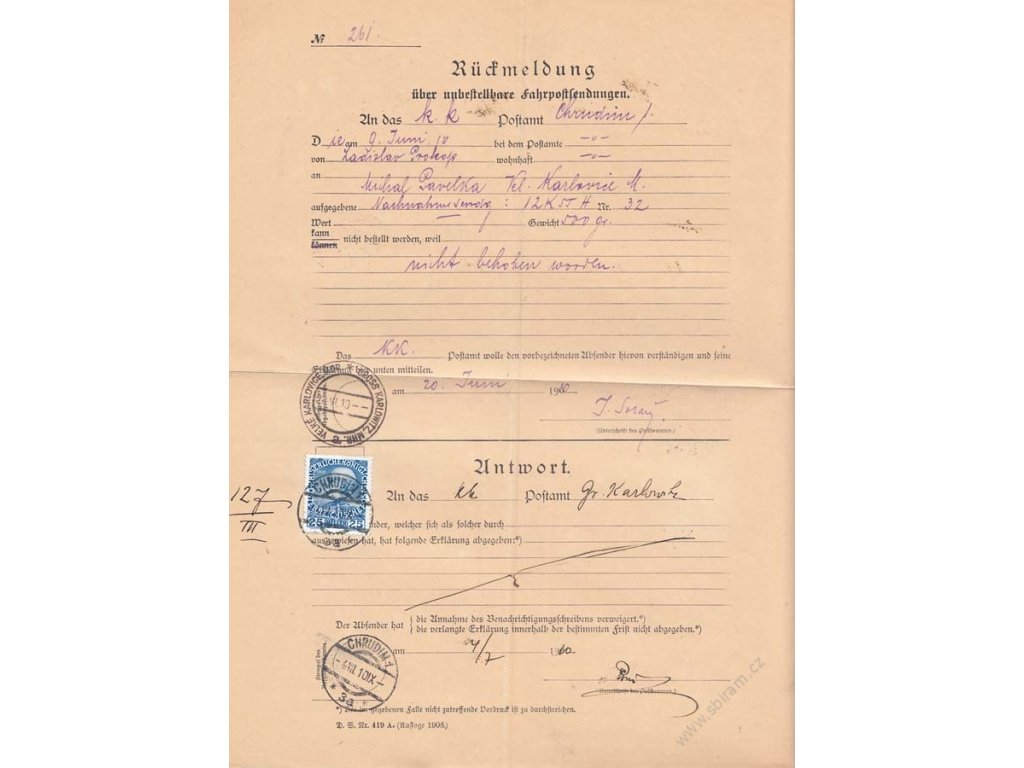 № 261.
Rückmeldung
über unbestellbare Fahrpostsendungen.
An das k. k. Postamt Chrudim 1.
Die am 9. Juni 10 bei dem Postamte -"-
von Ladislav Prokop wohnhaft -"-
an
Michal Pavelka Vel. Karlovice M.
aufgegebene Nachnahmesendg: 12 K 55 H Nr. 32
Wert Gewicht 500 gr.
kann
können nicht bestellt werden, weil
nicht behoben worden.
Das kk. Postamt wolle den vorbezeichneten Absender hievon verständigen und seine
unten mitteilen.
am 20. Juni 1910
(Unterschrift des Postbeamten.)
VELKÉ KARLOVICE MOR. * GROSS KARLOWITZ, MHR.
Antwort.
127
III
An das kk Postamt Gr. Karlowitz
CHRUDIM 1
25 25
3a
welcher sich als solcher durch
ausgewiesen hat, hat folgende Erklärung abgegeben:*)
Der Absender hat { die Annahme des Benachrichtigungsschreibens verweigert.*)
{ die verlangte Erklärung innerhalb der bestimmten Frist nicht abgegeben.*)
am 4/7 1910
CHRUDIM 1
3a
(Unterschrift des Postbeamten.)
gegebenen Falle nicht zutreffende Vordruck ist zu durchstreichen.
D. S. Nr. 419 A. (Auflage 1908.)
www.sbiram.cz